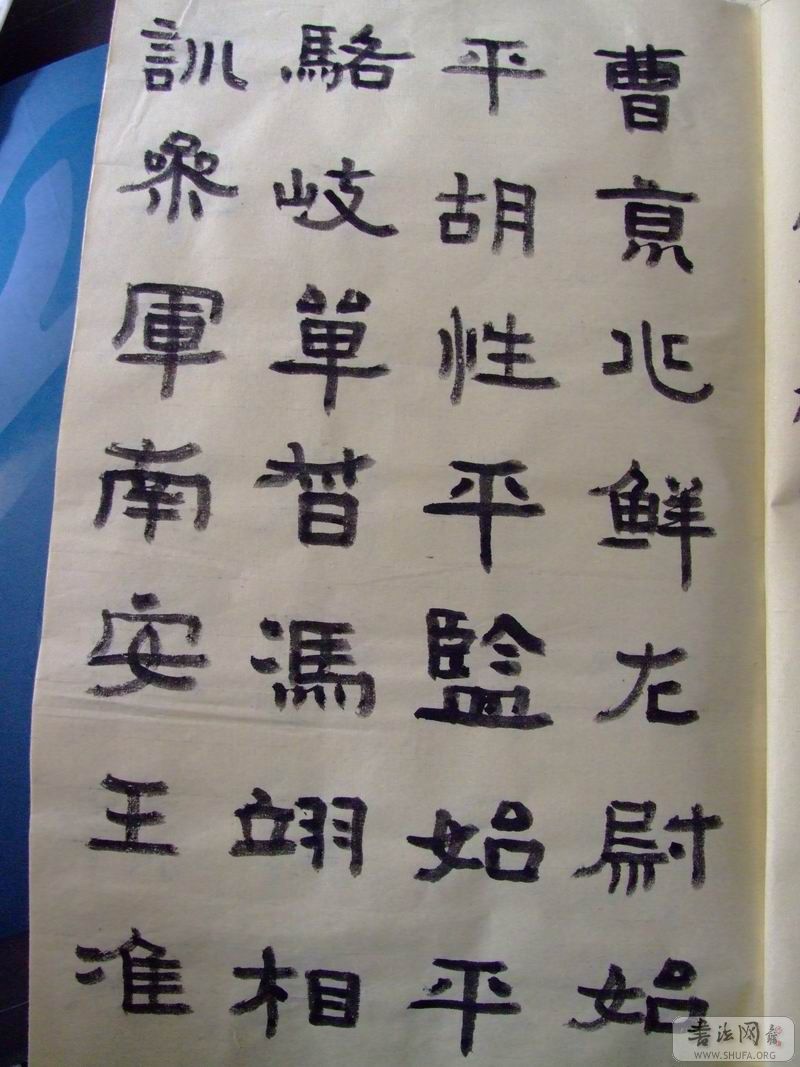 曹京兆鮮尉始
平胡性平監始平
駱岐單馮翊相
訓叅軍南安王准
书法网
WWW.SHUFA.ORG